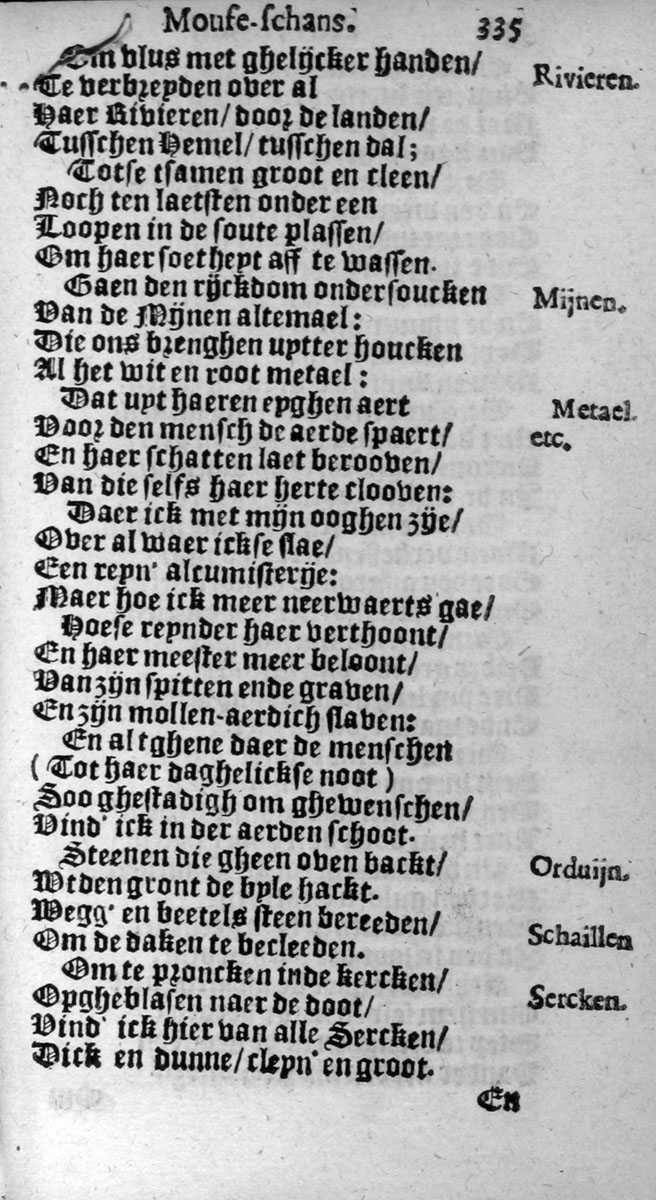 Mouse-schans. 335
Om vlus met ghelijcker handen/
Te verbreyden over al Rivieren.
Haer Rivieren/ door de landen/
Tusschen Hemel/ tusschen dal;
Totse tsamen groot en cleen/
Noch ten laetsten onder een
Loopen in de soute plassen/
Om haer soetheyt aff te wassen.
Gaen den rijckdom ondersoucken Mijnen.
Van de Mijnen altemael:
Die ons brenghen uytter houcken
Al het wit en root metael:
Dat uyt haeren eyghen aert Metael
Voor den mensch de aerde spaert/ etc.
En haer schatten laet berooven/
Van die selfs haer herte clooven:
Daer ick met mijn ooghen zije/
Over al waer ickse slae/
Een reyn' alcumisterije:
Maer hoe ick meer neerwaerts gae/
Hoese reynder haer verthoont/
En haer meester meer beloont/
Van zijn spitten ende graven/
En zijn mollen-aerdich slaven:
En al tghene daer de menschen
(Tot haer daghelickse noot)
Soo ghestadigh om ghewenschen/
Vind' ick in der aerden schoot.
Steenen die gheen oven backt/ Orduijn.
Wt den gront de byle hackt.
Wegg' en beetels steen bereeden/
Om de daken te becleeden. Schaillen
Om te proncken inde kercken/
Opgheblasen naer de doot/ Sercken.
Vind' ick hier van alle Sercken/
Dick en dunne/ cleyn' en groot.
En